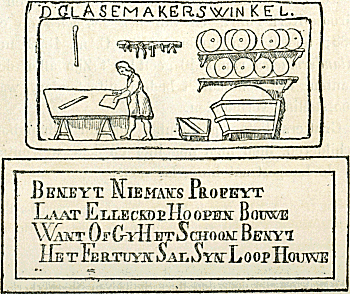 D'GLASEMAKERSWINKEL.
BENEYT NIEMANS PROFEYT
LAAT ELLECKOP HOOPEN BOUWE
WANT OF GY HET SCHOON BENYT
HET FERTUYN SAL SYN LOOP HOUWE